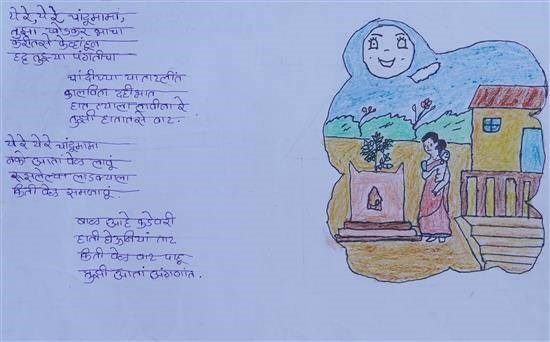 ये रे, ये रे चांदूमामा,
तुझा खोडकर भाचा
करीतसे केव्हांहून
हट्ट तुझ्या पंगतीचा
चांदीच्या या ताटलीत
कालविता दहीभात
हात त्याला लावीना रे
तुझी हातातसे वाट.
ये रे ये रे चांदूमामा
नको आता वेळ लावूं
रूसलेल्या लाडक्याला
किती वेळ समजावूं.
बाळ आहे कडेवरी
हाती घेऊनीयां ताट
किती वेळ वाट पाहू
तुझी आतां अंगणांत.